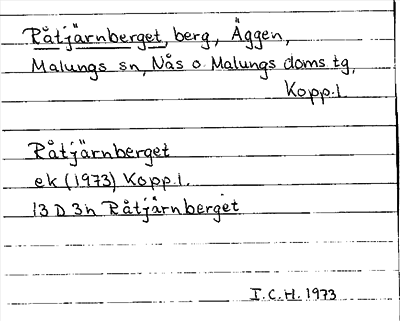 Råtjärnberget, berg, Äggen,
Malungs sn, Nås o Malungs doms tg,
Kopp.l
Råtjärnberget
ek (1973) Kopp.l.
13 D 3h Råtjärnberget
I.C.H. 1973